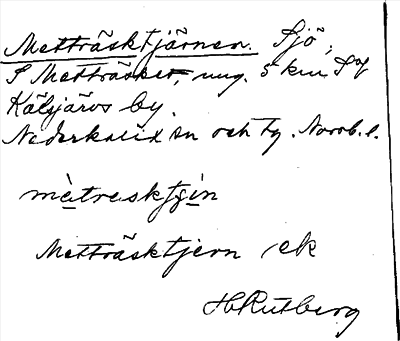 Metträsktjärnen. Sjö,
S Metträsket, ung. 5 km S of
Kälsjärvs by.
Nederkalix sn och tg. Norrb. l.
mètresktjin
Metträsktjern ek
H Rutberg